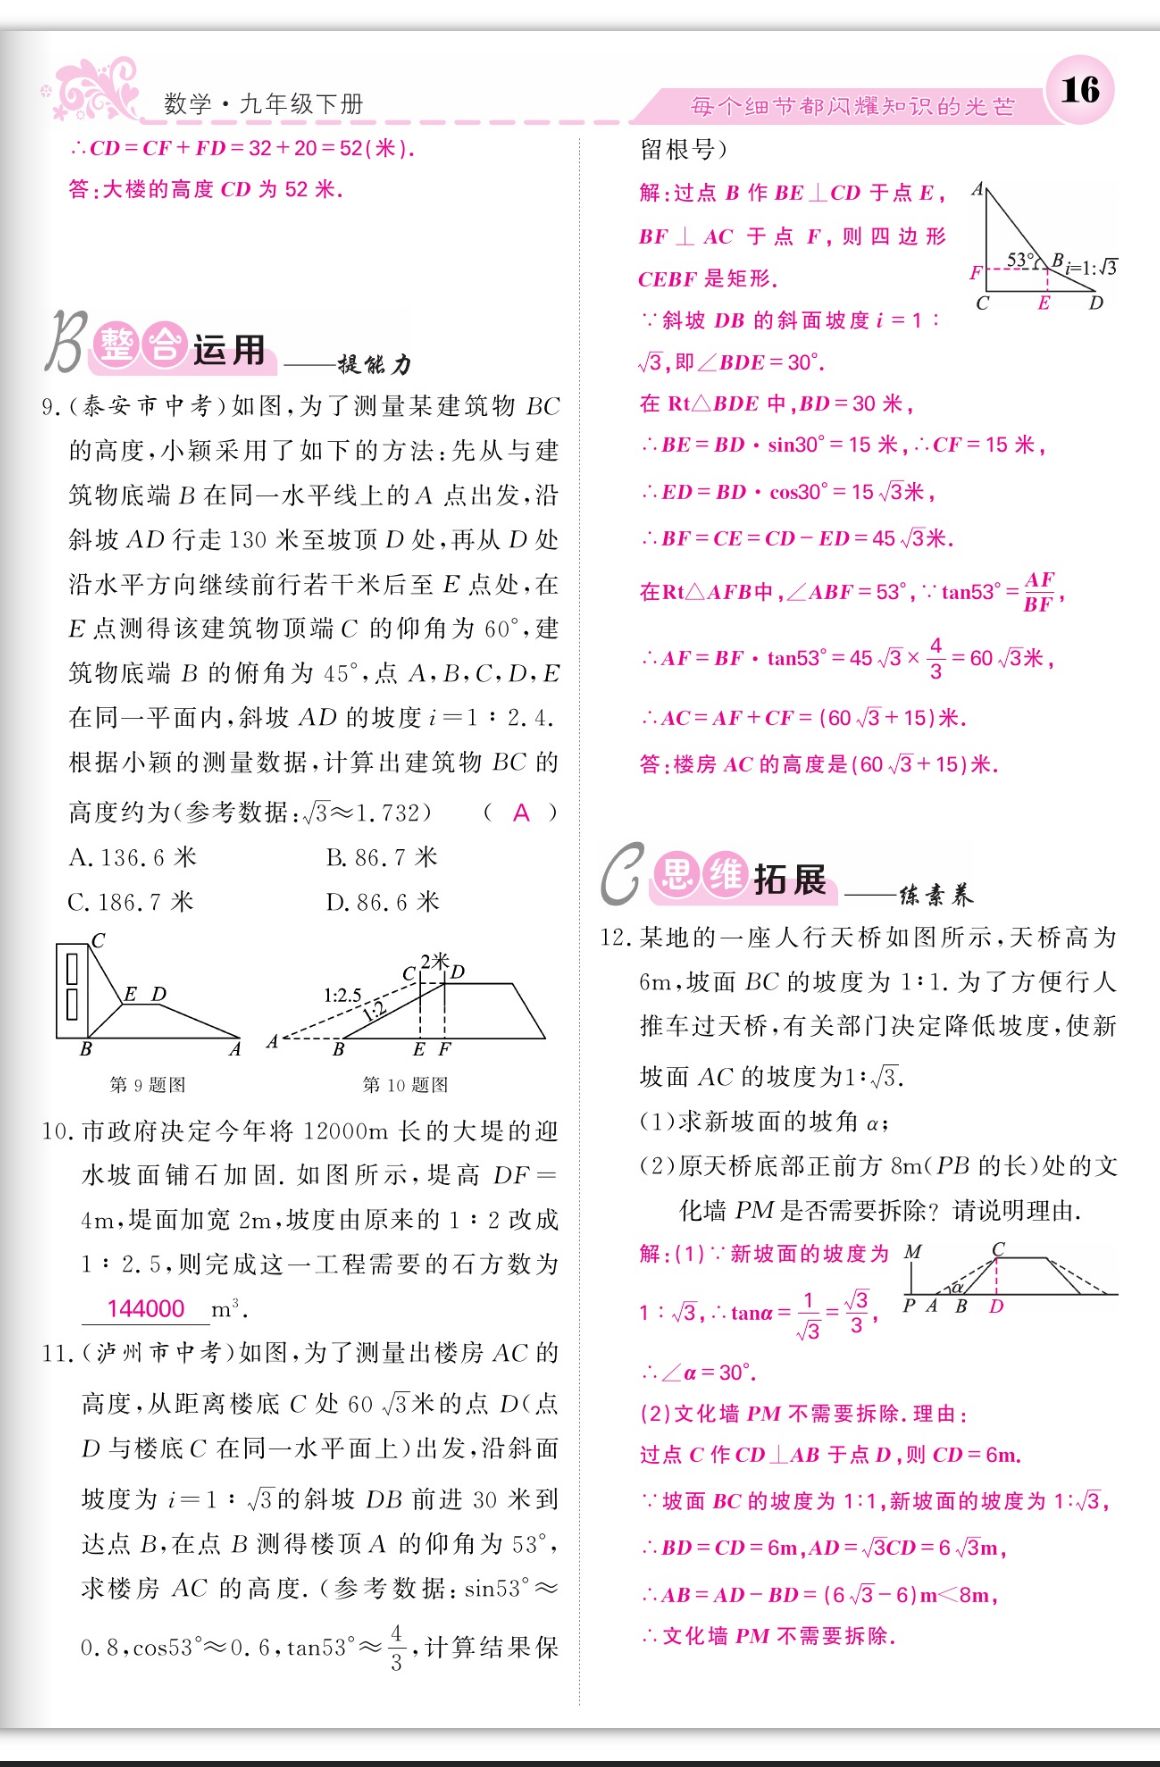 数学·九年级下册
每个细节都闪耀知识的光芒
16
∴CD=CF+FD=32+20=52(米).
答:大楼的高度 CD 为 52 米.
B 整合运用 ——提能力
9.(泰安市中考)如图,为了测量某建筑物 BC
的高度,小颖采用了如下的方法:先从与建
筑物底端 B 在同一水平线上的 A 点出发,沿
斜坡 AD 行走 130 米至坡顶 D 处,再从 D 处
沿水平方向继续前行若干米后至 E 点处,在
E 点测得该建筑物顶端 C 的仰角为 60°,建
筑物底端 B 的俯角为 45°,点 A,B,C,D,E
在同一平面内,斜坡 AD 的坡度 i=1∶2.4.
根据小颖的测量数据,计算出建筑物 BC 的
高度约为(参考数据:√3≈1.732) ( A )
A. 136.6 米 B. 86.7 米
C. 186.7 米 D. 86.6 米
C E D B A
第 9 题图
C 2米 D 1:2.5 1:2 A B E F
第 10 题图
10. 市政府决定今年将 12000m 长的大堤的迎
水坡面铺石加固. 如图所示,堤高 DF=
4m,堤面加宽 2m,坡度由原来的 1∶2 改成
1∶2.5,则完成这一工程需要的石方数为
144000 m³.
11.(泸州市中考)如图,为了测量出楼房 AC 的
高度,从距离楼底 C 处 60√3米的点 D(点
D 与楼底 C 在同一水平面上)出发,沿斜面
坡度为 i=1∶√3的斜坡 DB 前进 30 米到
达点 B,在点 B 测得楼顶 A 的仰角为 53°,
求楼房 AC 的高度.(参考数据:sin53°≈
0.8,cos53°≈0.6,tan53°≈4/3,计算结果保
留根号)
解:过点 B 作 BE⊥CD 于点 E,
BF⊥AC 于点 F,则四边形
CEBF 是矩形.
∵斜坡 DB 的斜面坡度 i=1∶
√3,即∠BDE=30°.
A 53° B i=1:√3 F C E D
在 Rt△BDE 中,BD=30 米,
∴BE=BD·sin30°=15 米,∴CF=15 米,
∴ED=BD·cos30°=15√3米,
∴BF=CE=CD-ED=45√3米.
在Rt△AFB中,∠ABF=53°,∵tan53°=AF/BF,
∴AF=BF·tan53°=45√3×4/3=60√3米,
∴AC=AF+CF=(60√3+15)米.
答:楼房 AC 的高度是(60√3+15)米.
C 思维拓展 ——练素养
12. 某地的一座人行天桥如图所示,天桥高为
6m,坡面 BC 的坡度为 1∶1. 为了方便行人
推车过天桥,有关部门决定降低坡度,使新
坡面 AC 的坡度为1∶√3.
(1)求新坡面的坡角 α;
(2)原天桥底部正前方 8m(PB 的长)处的文
化墙 PM 是否需要拆除? 请说明理由.
解:(1)∵新坡面的坡度为
1∶√3,∴tanα=1/√3=√3/3,
M C α P A B D
∴∠α=30°.
(2)文化墙 PM 不需要拆除.理由:
过点 C 作 CD⊥AB 于点 D,则 CD=6m.
∵坡面 BC 的坡度为 1∶1,新坡面的坡度为 1∶√3,
∴BD=CD=6m,AD=√3CD=6√3m,
∴AB=AD-BD=(6√3-6)m<8m,
∴文化墙 PM 不需要拆除.